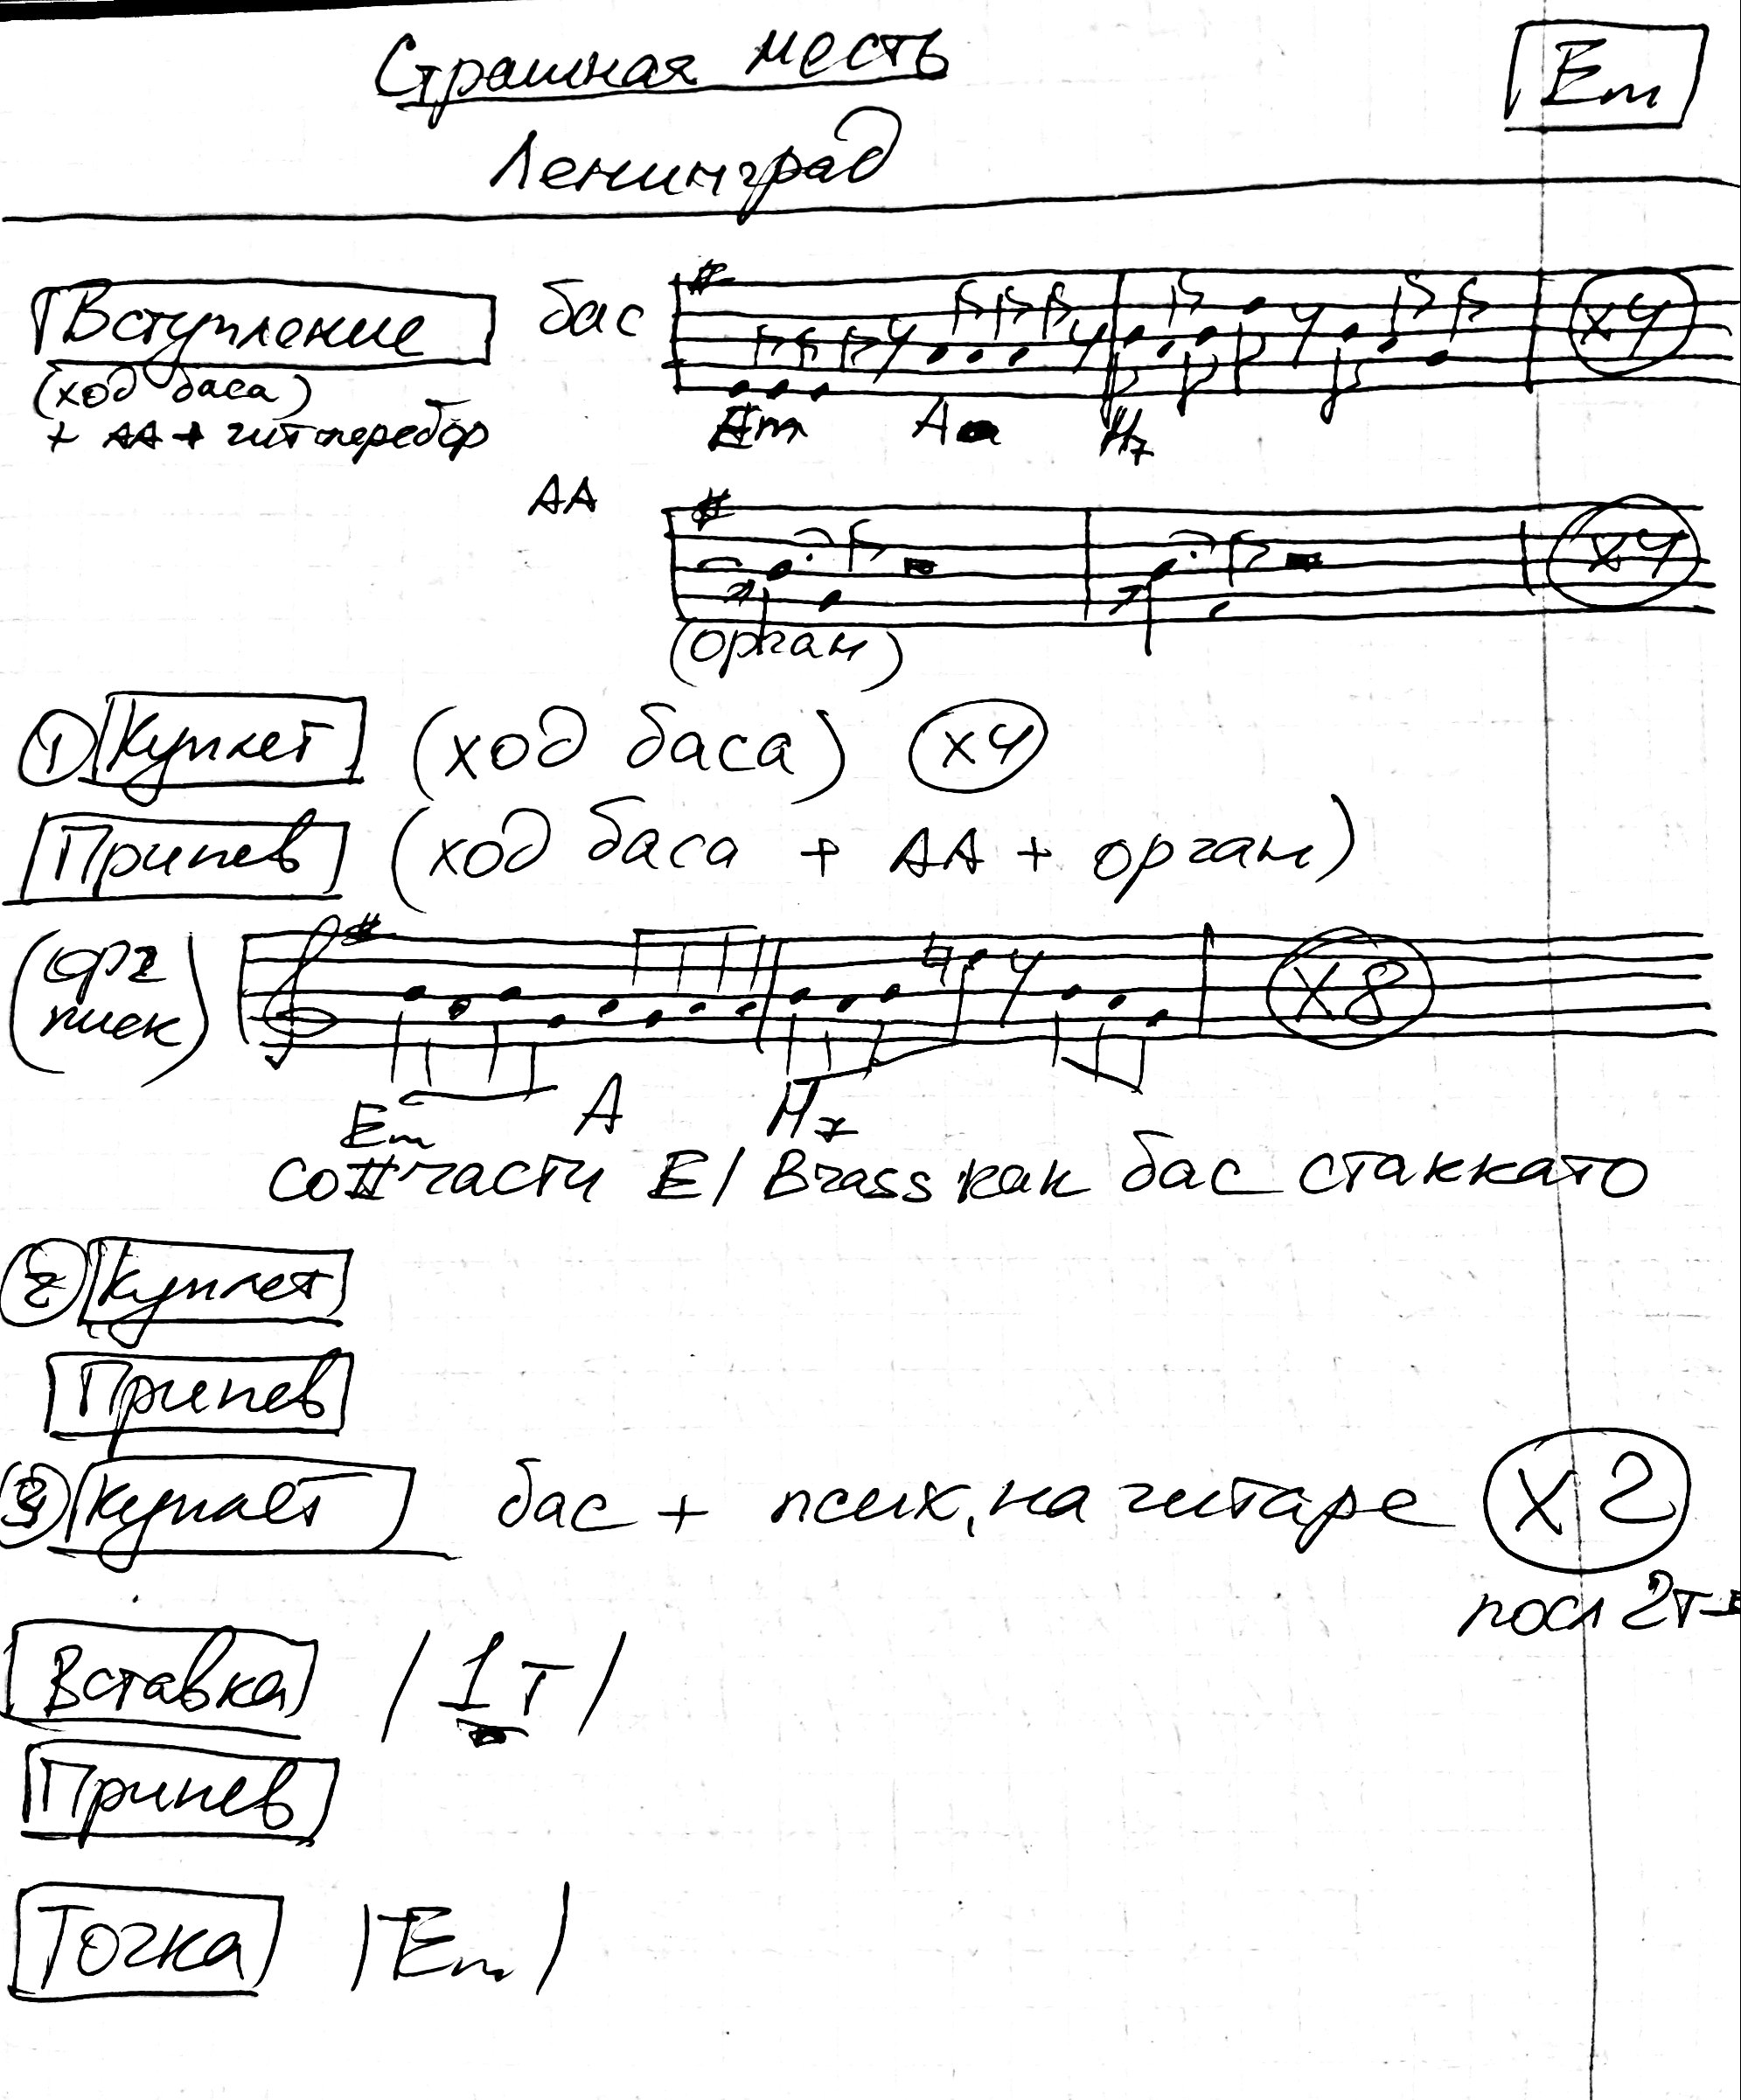 Страшная месть
Em
Ленинград
Вступление бас x4
(ход баса)
+ АА + гит перебор
Em A H7
АА x4
(орган)
1 Куплет (ход баса) x4
Припев (ход баса + АА + орган)
(орг x8
Em A H7
части E/ Brass как бас стаккато
2 Куплет
Припев
3 Куплет бас + псих, на гитаре x2
посл 2т
Вставка / 1т /
Припев
Точка | Em |